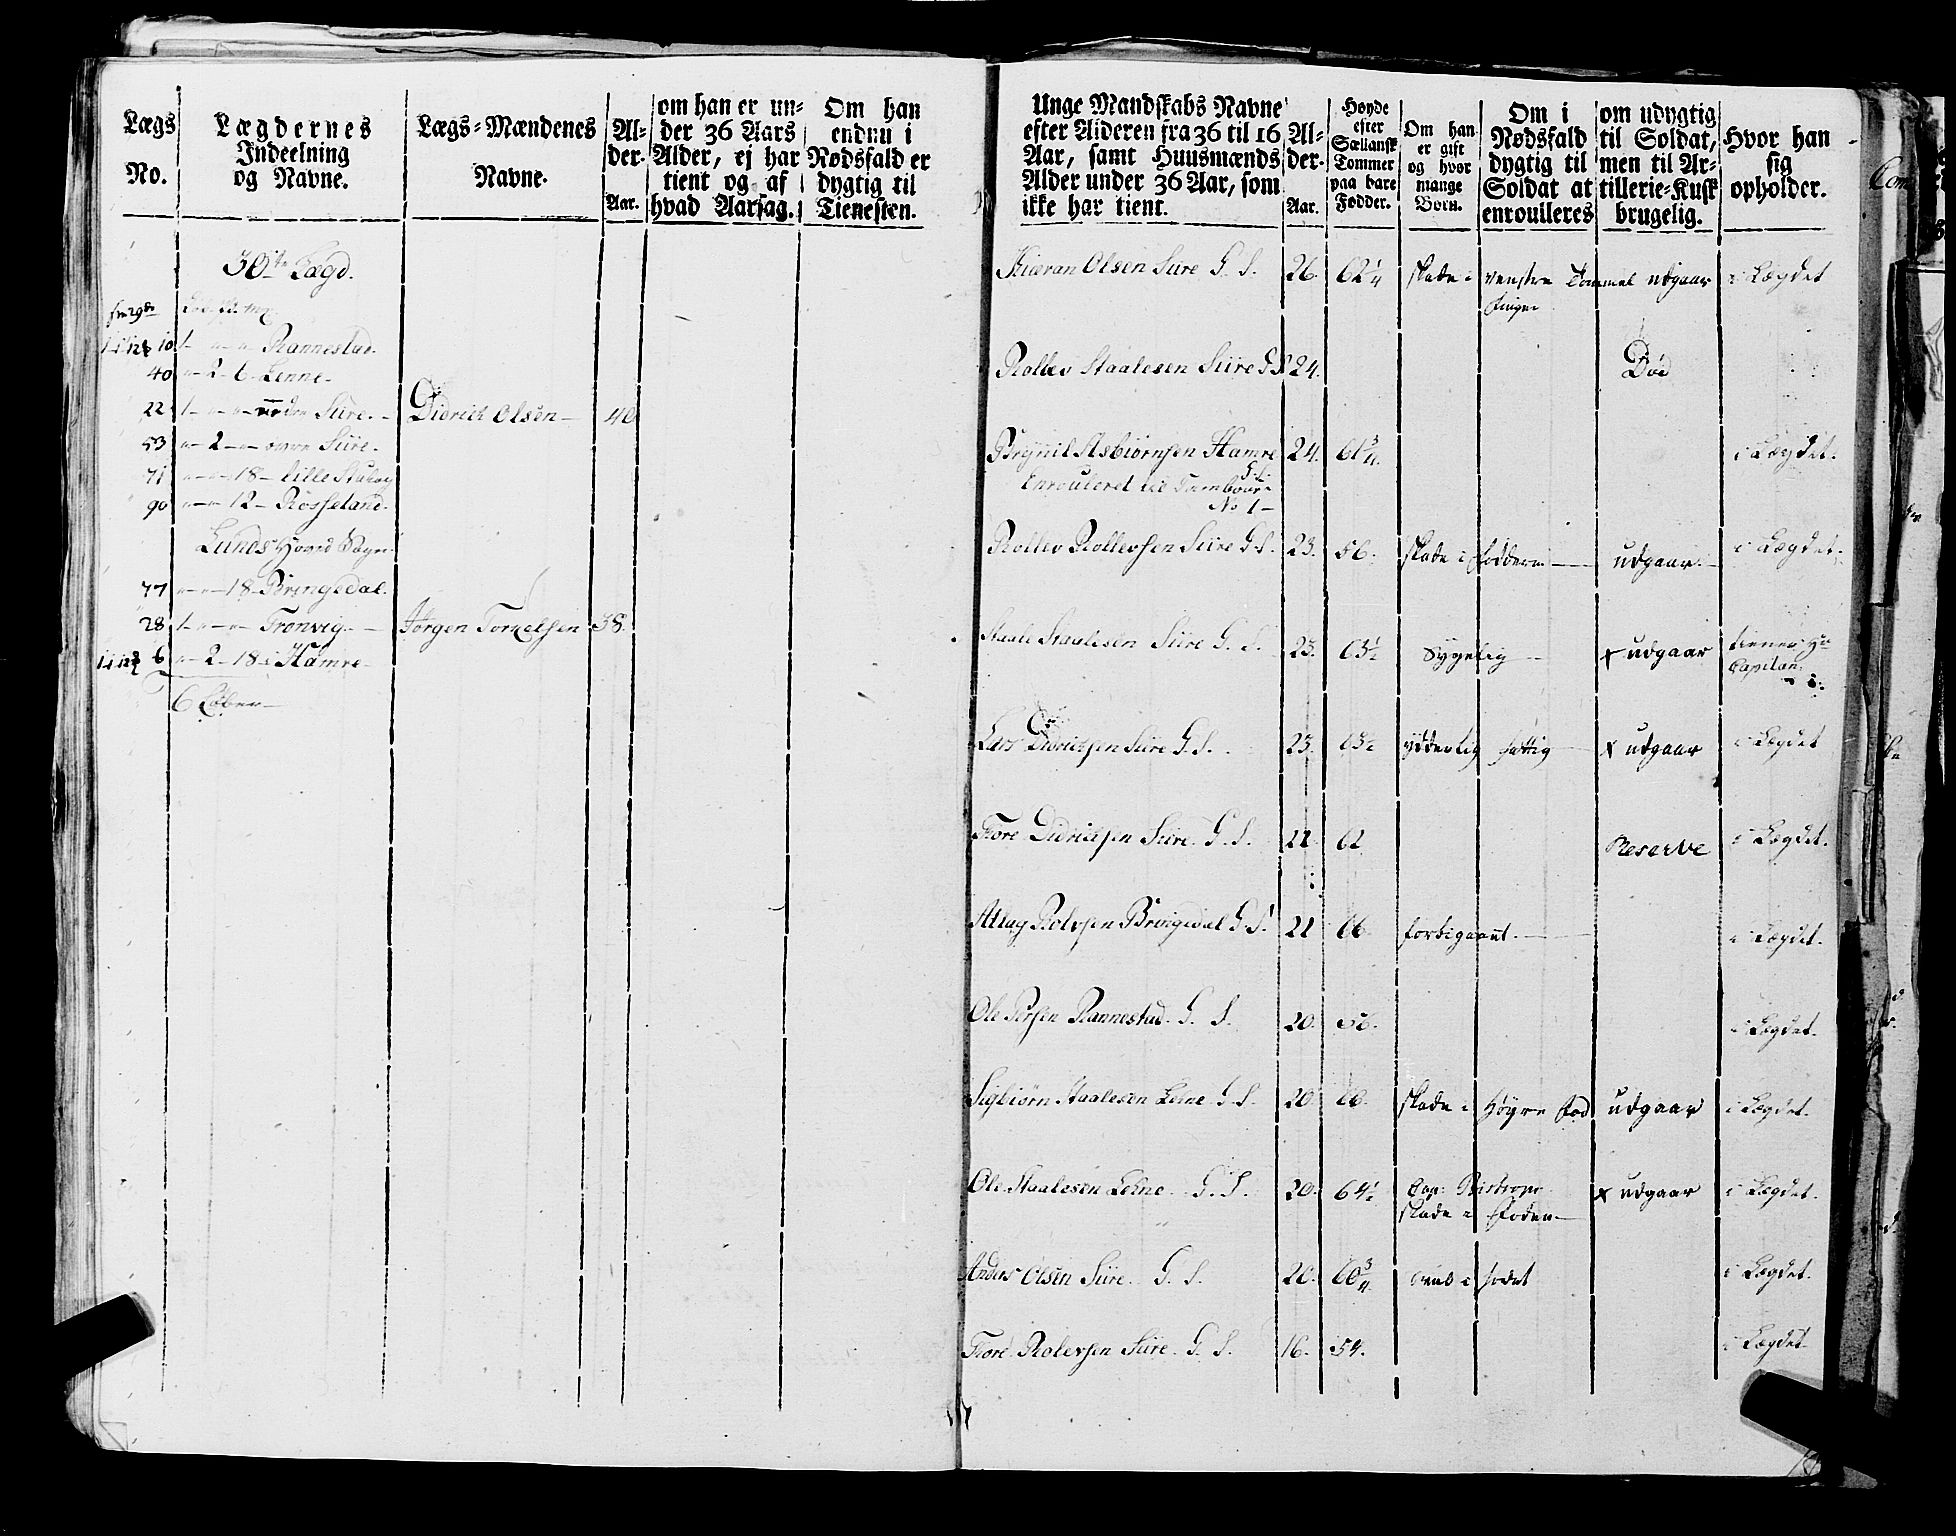 Lægs
No.
Lægdernes
Indeelning
og Navne.
Lægs-Mændenes
Navne.
Al-
der.
Aar.
om han er un-
der 36 Aars
Alder, ej har
tient og af
hvad Aarsag.
Om han
endnu i
Nødsfald er
dygtig til
Tienesten.
30te Lægd.
10 1 - - Rannestad.
40 - 2 - 6 - Lenne.
22 1 - - - nedre Siire. - Didrick Olsen - 40
53 - 2 - - øvre Siire.
71 - - - 18 - lille
90 - - 12 - Rosseland.
Lunds Hoved Sogn.
77 - - 18 - Bringedal.
28 1 - - - Tronvig. - Jørgen Torkelsen 38.
6 - 2 - 18 - Hamre -
6 Løber -
Unge Mandskabs Navne
efter Alderen fra 36 til 16
Aar, samt Huusmænds
Alder under 36 Aar, som
ikke har tient.
Al-
der.
Aar.
Høyde
efter
Sællansk
Tommer
paa bare
Fødder.
Om han
er gift
og hvor
mange
Børn.
Om i
Nødsfald
dygtig til
Soldat at
enroulleres
om udygtig
til Soldat,
men til Ar-
tillerie-Kusk
brugelig.
Hvor han
sig
opholder.
Kiæran Olsen Siire G. S. 26. 62 1/4 skade i venstre Tommel udgaar i Lægdet
Finger
Rollev Staalesen Siire G S 24. Død
Brynil Asbiørnsen Hamre 24. 61 3/4. i Lægdet.
G. S.
Enroulleret til Tambour
No 1 -
Rollev Rollevsen Siire G. S. 23. 56. skade i fødderne - udgaar. i Lægdet.
Staale Staalesen Siire G. S. 23. 63 1/2 Sygelig - x udgaar tiener Hr
Capitain
Lars Didricksen Siire G. S. 23. 63 1/2 ydderlig fattig - x udgaar i Lægdet
Tore Didricksen Siire. G. S. 22. 62 Reserve i Lægdet.
Aslag Rolvsen Bringedal G S. 21 66. forbigaaet. - i Lægdet.
Ole Persen Rannestad. G. S. 20. 56. i Lægdet.
Sigbiørn Staalesen Lenne G. S. 20. 66. skade i høyre fod udgaar i Lægdet.
Ole Staalesen Lenne. G. S. 20. 64 1/2 x udgaar i Lægdet.
skade i foden -
Anders Olsen Siire. G. S. 20. 60 3/4 i fodet i Lægdet.
Tore Rolevsen Siire. G. S. 16. 54. i Lægdet.